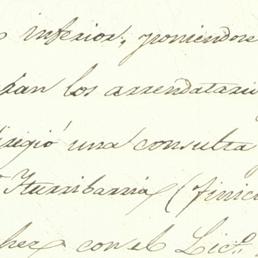 inferior, poniendose
ran los arrendatari
irigió una consulta
Iturribarria (finic
her con el Lic.º